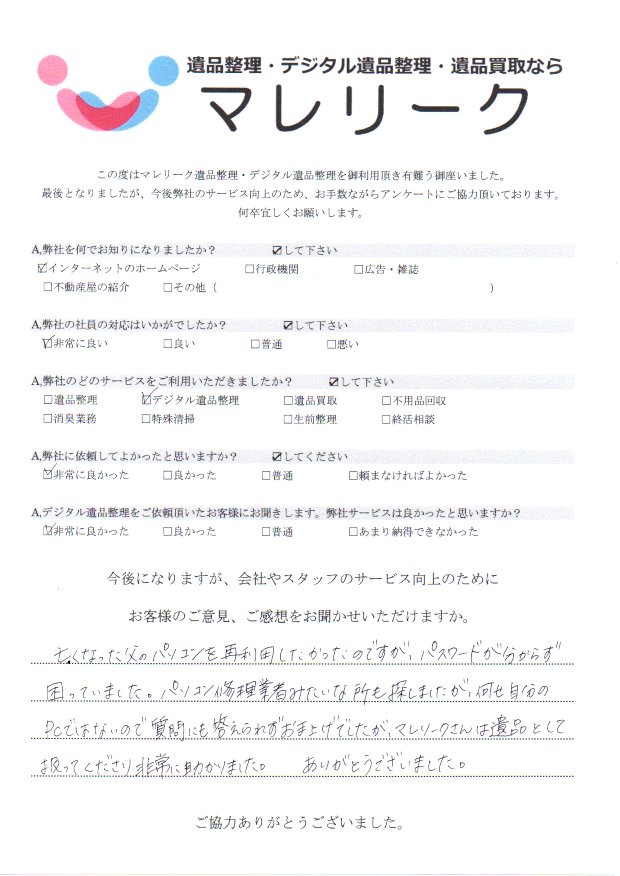 遺品整理・デジタル遺品整理・遺品買取なら
マレリーク
この度はマレリーク遺品整理・デジタル遺品整理を御利用頂き有難う御座いました。
最後となりましたが、今後弊社のサービス向上のため、お手数ながらアンケートにご協力頂いております。
何卒宜しくお願いします。
A,弊社を何でお知りになりましたか？ ☑して下さい
☑インターネットのホームページ □行政機関 □広告・雑誌
□不動産屋の紹介 □その他（ ）
A,弊社の社員の対応はいかがでしたか？ ☑して下さい
☑非常に良い □良い □普通 □悪い
A,弊社のどのサービスをご利用いただきましたか？ ☑して下さい
□遺品整理 ☑デジタル遺品整理 □遺品買取 □不用品回収
□消臭業務 □特殊清掃 □生前整理 □終活相談
A,弊社に依頼してよかったと思いますか？ ☑してください
☑非常に良かった □良かった □普通 □頼まなければよかった
A,デジタル遺品整理をご依頼頂いたお客様にお聞きします。弊社サービスは良かったと思いますか？
☑非常に良かった □良かった □普通 □あまり納得できなかった
今後になりますが、会社やスタッフのサービス向上のために
お客様のご意見、ご感想をお聞かせいただけますか。
亡くなった父のパソコンを再利用したかったのですが、パスワードが分からず
困っていました。パソコン修理業者みたいな所も探しましたが、何せ自分の
PCではないので質問にも答えられずお手上げでしたが、マレリークさんは遺品として
扱ってくださり非常に助かりました。 ありがとうございました。
ご協力ありがとうございました。